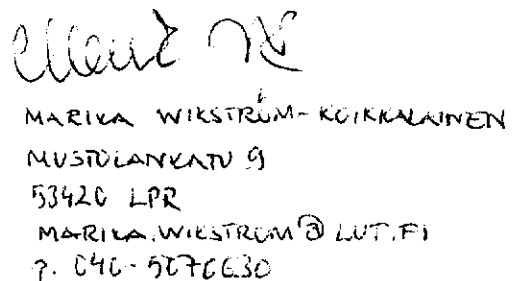 MARIKA WIKSTRÖM-KOIKKALAINEN
MUSTOLANKATU 9
53420 LPR
MARIKA.WIKSTROM@LUT.FI
P. 040-5070630